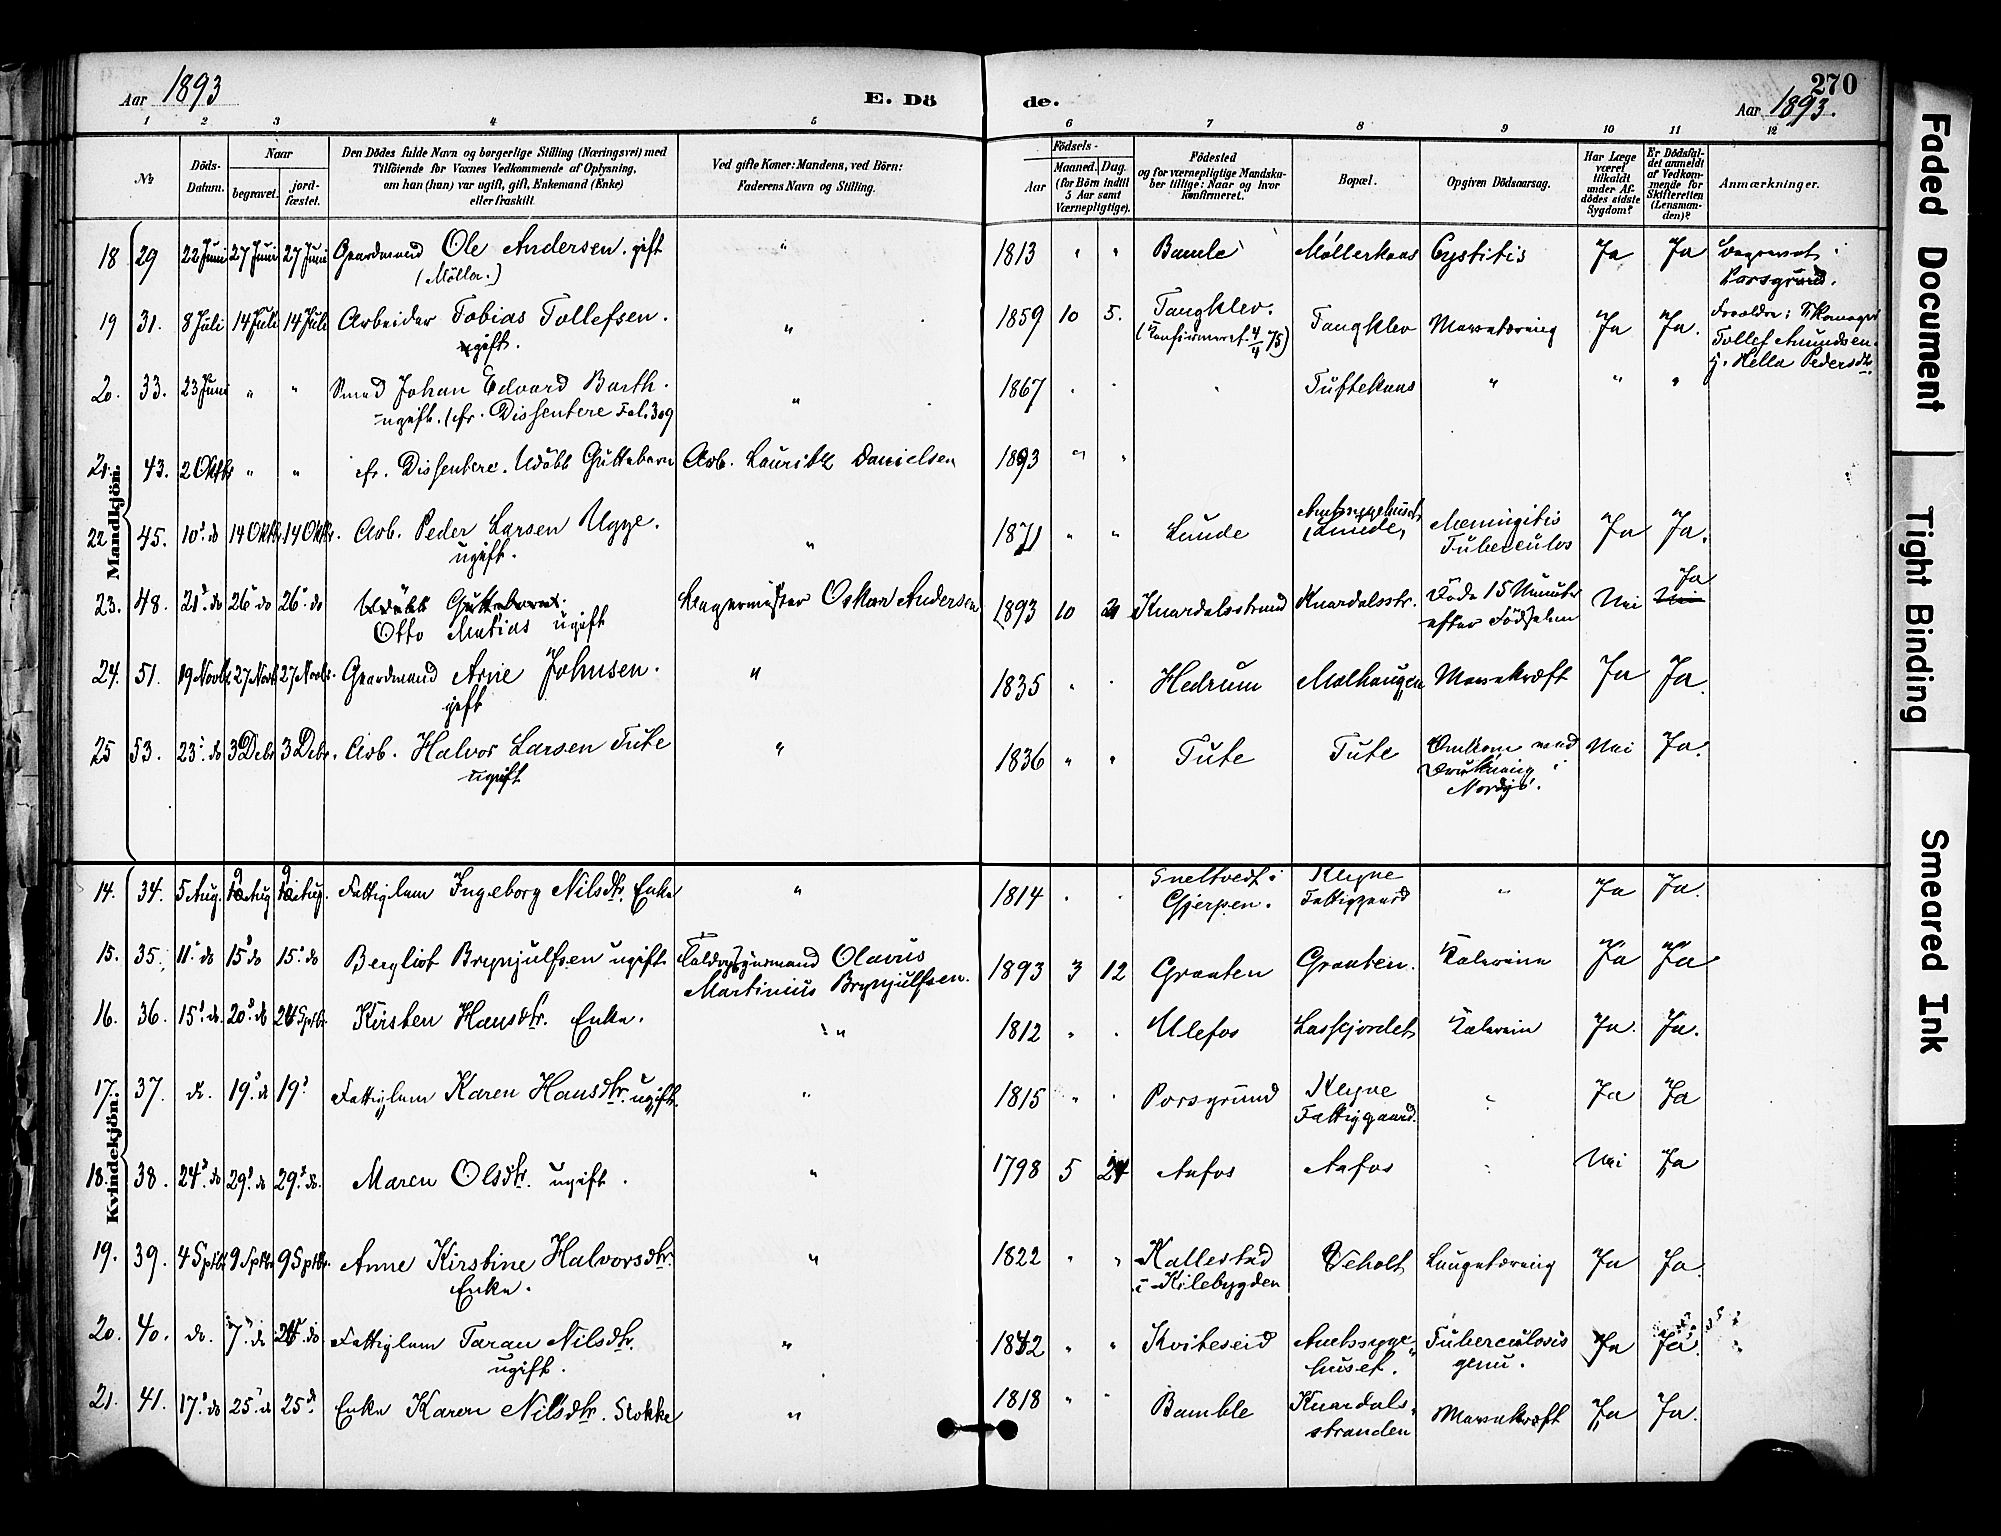 270
Aar 1893
E. Döde.
Aar 1893.
1 2 3 4 5 6 7 8 9 10 11 12
No
Döds-Datum.
Naar
begravet.
jordfæstet.
Den Dödes fulde Navn og borgerlige Stilling (Næringsvei) med
Tilföiende for Voxnes Vedkommende af Oplysning,
om han (hun) var ugift, gift, Enkemand (Enke)
eller fraskilt
Ved gifte Koner: Mandens, ved Börn:
Faderens Navn og Stilling.
Födsels-
Aar
Maaned.
Dag.
(for Börn indtil
5 Aar samt
Værnepligtige).
Födested
og for værnepligtige Mandskaber tillige: Naar og hvor
konfirmeret.
Bopæl.
Opgiven Dödsaarsag.
Har Læge
været
tilkaldt
under Afdödes sidste
Sygdom?
Er Dödsfaldet anmeldt
af Vedkommende for
Skifteretten
(Lensmanden)?
Anmærkninger.
Mandkjön.
18 29 22 Juni 27 Juni 27 Juni Gaardmand Ole Andersen. gift " 1813 " " Bamle Möllerkaas Cystitis Ja Ja Begravet i
(Möller.) Porsgrund.
19 31. 8 Juli 14 Juli 14 Juli Arbeider Tobias Tollefsen. " 1859 10 5. Tangklev. Tangklev Marvetæring Ja Ja. Forældre:
ugift. (Konfirmeret 4/4 75) Tollef Amundsen
Hella Pedersdtr.
20. 33. 23 Juni " " Smed Johan Edvard Barth. " 1867 Tuftekaas " " "
ugift. (cfr. Dissentere Fol. 309
21. 43. 2 Oktbr " " cfr. Dissentere. Udöbt Guttebarn Arb. Lauritz Danielsen 1893 " "
22 45. 10' do 14 Oktbr. 14 Oktbr. Arb. Peder Larsen Ugge. " 1871 " " Lunde Amtssygehuset Meningitis Ja Ja.
ugift. (Lunde) Tuberculos
23. 48. 21' do 26' do 26' do Udöbt Guttebarn. Oskar Andersen 1893 10 21 Knardalsstrand Knardalsstr. Döde 15 Minuter Nei Nei Ja
Otto Matias ugift efter Födselen
24. 51. 19 Novbr 27 Novbr 27 Novbr. Gaardmand Arne Johnsen. " 1835 " " Hedrum Mælhaugen Mavekræft Ja Ja.
gift
25 53. 23' do 3 Debr 3 Debr. Arb. Halvor Larsen Tute " 1836 " " Tute Tute Omkom ved Nei Ja.
ugift Drukning i
Nordsjö.
Kvindekjön.
14. 34. 5 Aug. 9 Aug 9 Aug. Fattiglem Ingeborg Nilsdtr. Enke " 1814 Sneltvedt i Klyve " Ja Ja.
Gjerpen. Fattiggaard
15. 35. 11' do 15' do 15' do Bergliot Brynjulfsen ugift Olavus 1893 3 12 Graaten Graaten. Kolerine Ja Ja
Martinius Brynjulfsen.
16. 36. 15' do. 20' do 24 Sptbr. Kirsten Hansdtr. Enke. " 1812 " Ulefos Lassejordet Kolerine Ja. Ja.
17. 37. do. 19' do 19' Fattiglem Karen Hansdtr. ugift. " 1815 " Porsgrund Klyve " Ja Ja
Fattiggaard.
18. 38. 24' do 29' do 29' do. Maren Olsdtr. ugift. " 1798 5 24 Aafos Aafos " Nei Ja
19. 39. 4 Sptbr 9 Sptbr 9 Sptbr. Anne Kirstine Halvorsdtr. " 1822 " " Kallestad Veholt Lungetæring Ja Ja.
Enke. i Kilebygden
20. 40. do. 7' do do Fattiglem Taran Nilsdtr. " 1842 " " Kviteseid Amtssyge- Tuberculosis Ja Ja.
ugift. huset. genu.
21. 41. 17' do 25' do 25' Enke Karen Nilsdtr. Stokke " 1818 " " Bamble Knardals- Mavekræft Ja Ja.
stranden
Faded Document
Tight Binding
Smeared Ink